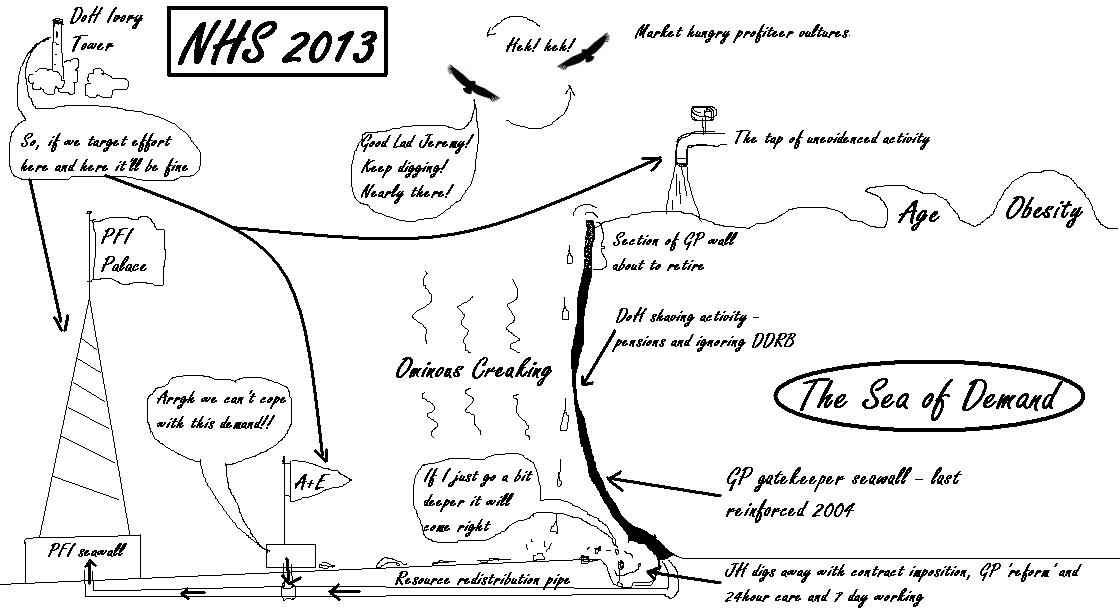 DoH Ivory
Tower
NHS 2013
Heh! heh!
Market hungry profiteer vultures.
So, if we target effort
here and here it'll be fine
Good Lad Jeremy!
Keep digging!
Nearly there!
The tap of unevidenced activity
Age
Obesity
PFI
Palace
Section of GP wall
about to retire
DoH shaving activity -
pensions and ignoring DDRB
Ominous Creaking
The Sea of Demand
Arrgh we can't cope
with this demand!!
A+E
If I just go a bit
deeper it will
come right
GP gatekeeper seawall - last
reinforced 2004
PFI seawall
Resource redistribution pipe
JH digs away with contract imposition, GP 'reform' and
24hour care and 7 day working